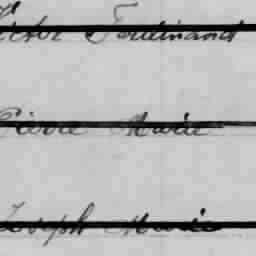 Victor Ferdinand
Pierre Marie
Joseph Marie